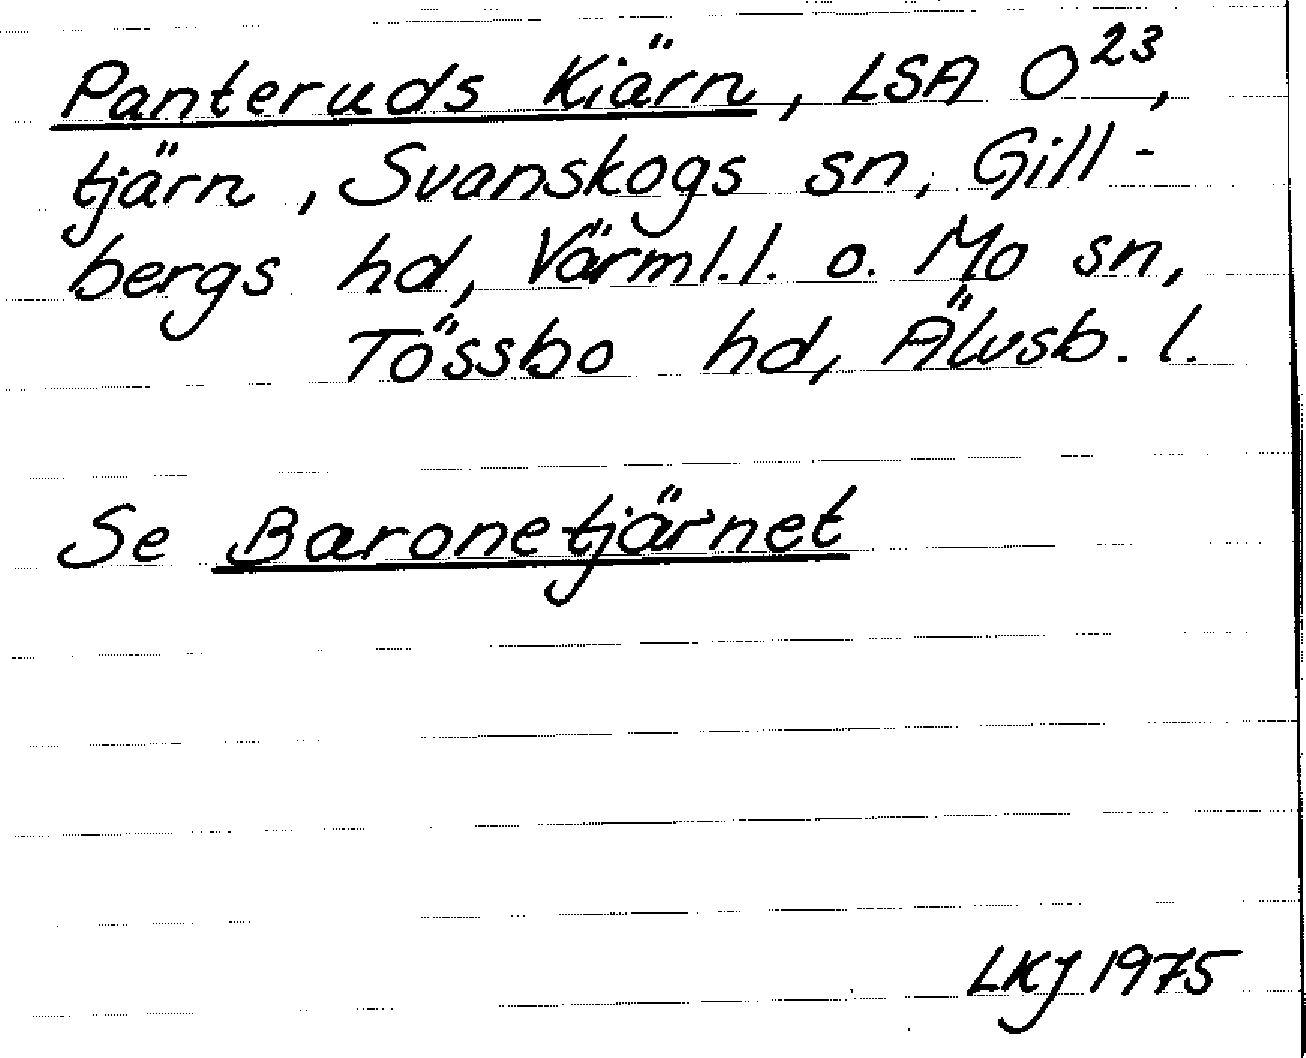 Panteruds Kiärn, LSA O²³,
tjärn, Svanskogs sn, Gill-
bergs hd, Värml. l. o. Mo sn,
Tössbo hd, Älvsb. l.
Se Baronetjärnet
LKJ 1975